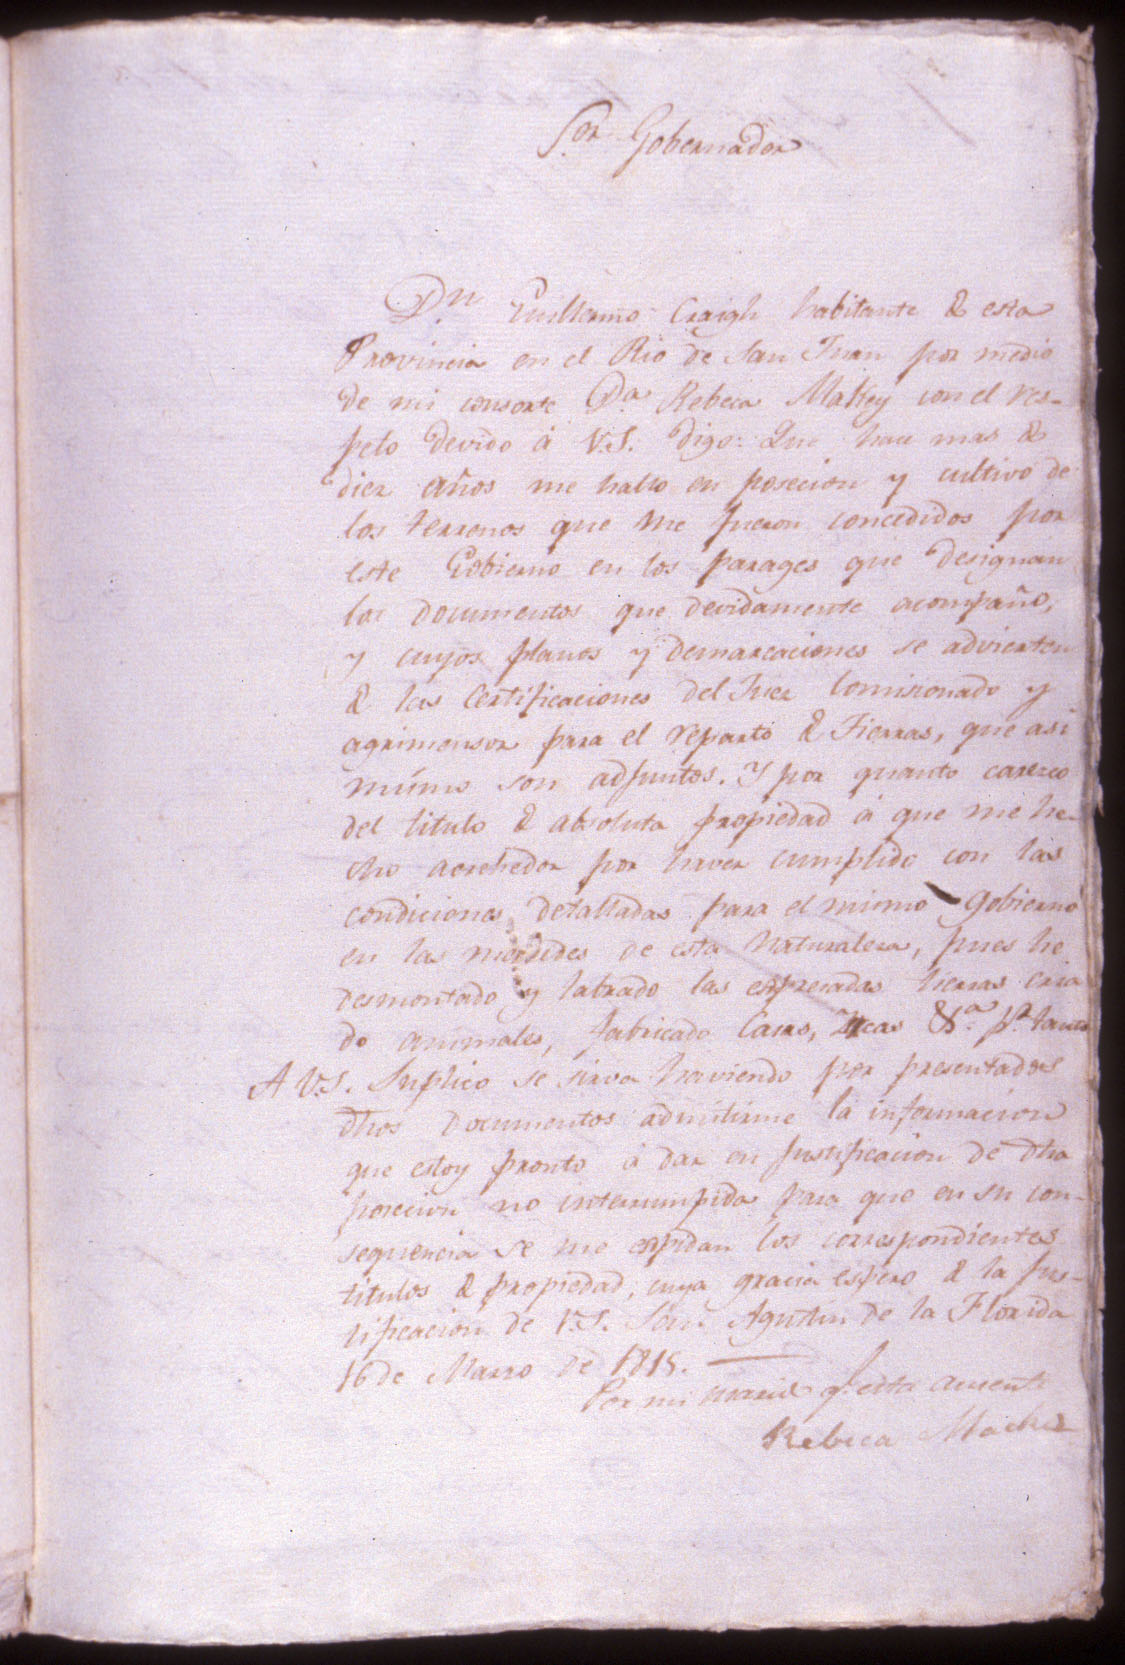 S.or Gobernador
Dn Guillermo Craigh habitante de esta
Provincia en el Rio de San Juan por medio
de mi consorte Da. Rebeca Makey con el res-
peto devido á V.S. digo: Que hace mas de
diez años me hallo en posecion y cultivo de
los terrenos que me fueron concedidos por
este Gobierno en los parages que designan
los documentos que devidamente acompaño,
y cuyos planos y demarcaciones se advierten
de las Certificaciones del Juez Comisionado y
agrimensor para el reparto de Tierras, que asi
mismo son adjuntos. Y por quanto carezco
del titulo de absoluta propiedad á que me he
cho acrehedor por haver cumplido con las
condiciones detalladas para el mismo Gobierno
en las mercedes de esta naturaleza, pues he
desmontado y labrado las expresadas tierras cria
do animales, fabricado Casas, &a. pr. tanto
A V.S. Suplico se sirva haviendo por presentados
dhos documentos admitirme la informacion
que estoy pronto á dar en justificacion de dha
posecion no interrumpida para que en su con-
sequencia se me expidan los correspondientes
titulos de propiedad, cuya gracia espero de la jus-
tificacion de V.S. San Agustin de la Florida
16 de Marzo de 1815.
Por mi marido q.e esta ausente
Rebeca